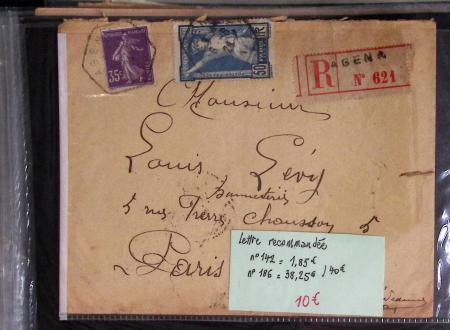 AGEN
35c
50
R AGEN A
N° 621
Monsieur
Louis Lévy
Bonneterie
5 rue Pierre Chausson 5
Paris
Lettre recommandée
n°142 = 1,85€
n°186 = 38,25€ / 40€
10€